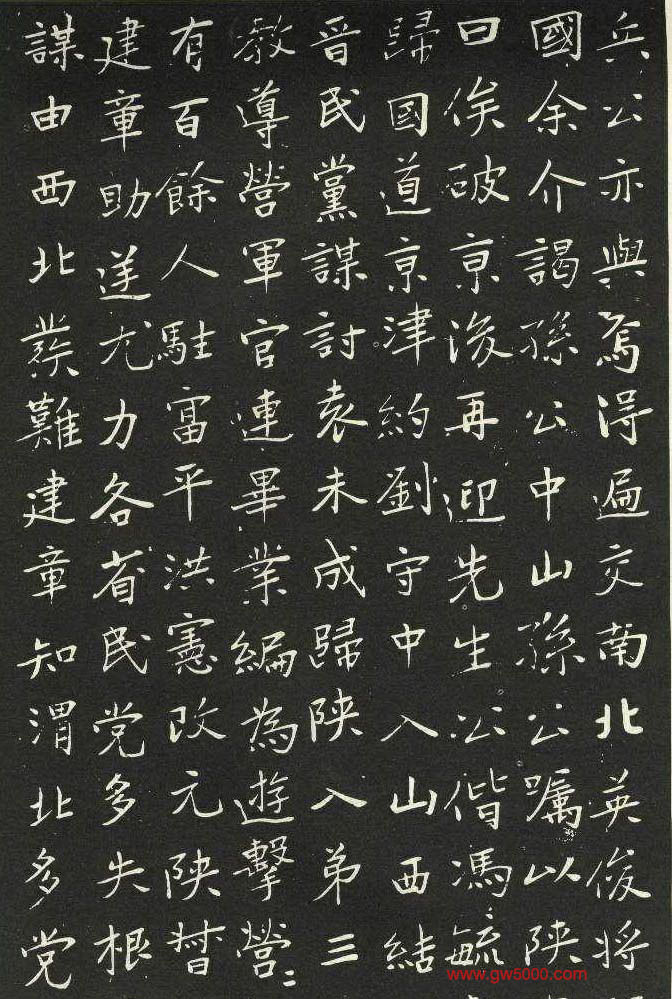 兵公亦與焉得遍交南北英俊将
國余介謁孫公中山孫公囑以陕
曰俟破京後再迎先生公偕馮毓
歸國道京津約劉守中入山西結
晋民黨謀討袁未成歸陕入弟三
教導營軍官連畢業編為遊擊營〻
有百餘人駐富平洪憲改元陕督
建章助逆尤力各省民党多失根
謀由西北發難建章知渭北多党
www.gw5000.com